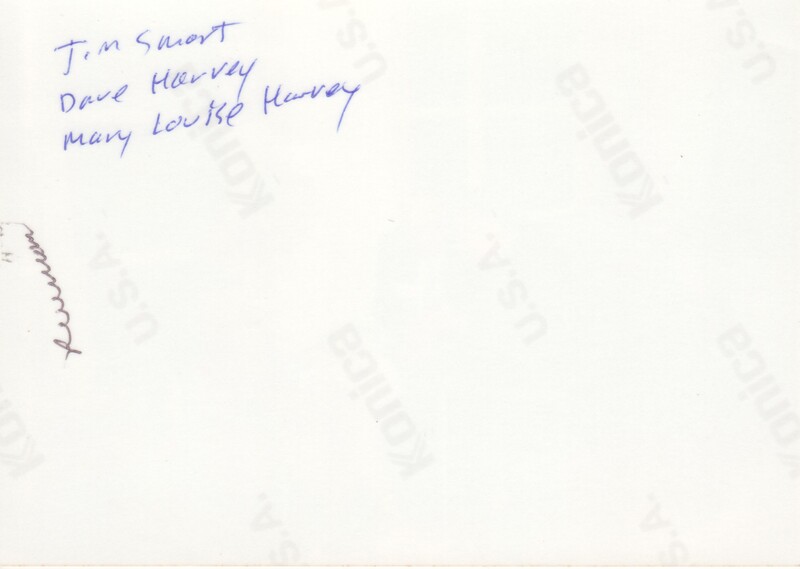 Jim Smart
Dave Harvey
Mary Louise Harvey
U.S.A.
U.S.A.
Konica
Konica
U.S.A.
U.S.A.
Konica
Konica
Konica
U.S.A.
U.S.A.